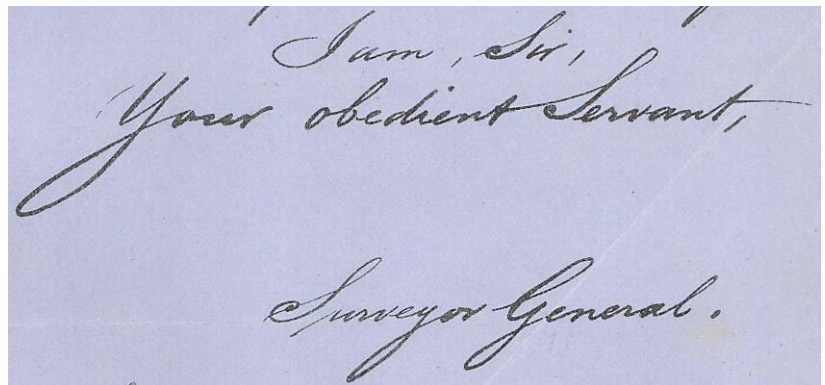 I am, Sir,
Your obedient Servant,
Surveyor General.